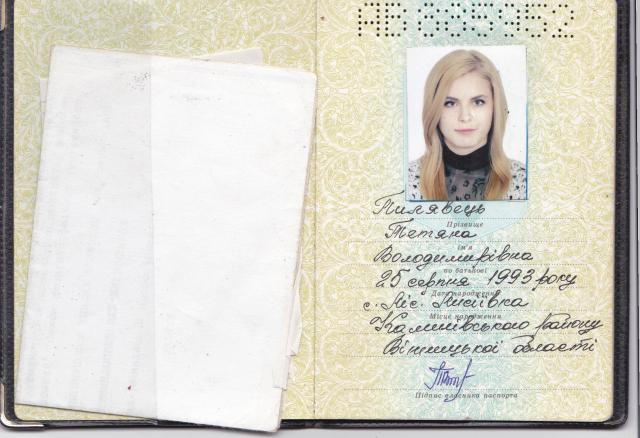 АВ 635952
Пилявець
Прізвище
Тетяна
Ім'я
Володимирівна
по батькові
25 серпня 1993 року
Дата народження
с. Ліс. Лисіївка
Місце народження
Калинівського району
Вінницької області
Підпис власника паспорта